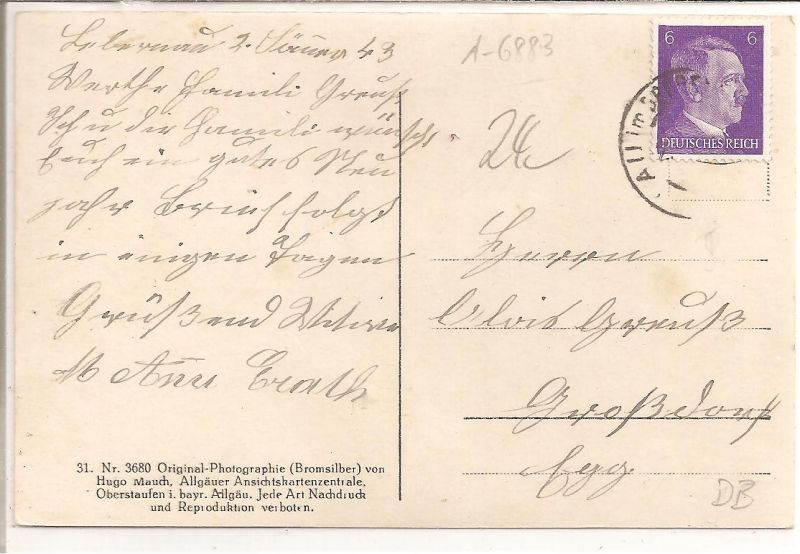 2. Jänner 43
Werthe Famili Greuß
Ich u die Famili wünscht
Euch ein gutes Neu
jahr Brief folgt
in einigen Tagen
Grüßend Witwe
M Anna
A-6883
24
6 6
DEUTSCHES REICH
Au im
Herrn
Alois Greuß
Großdorf
Egg
DB
31. Nr. 3680 Original-Photographie (Bromsilber) von
Hugo Mauch, Allgäuer Ansichtskartenzentrale,
Oberstaufen i. bayr. Allgäu. Jede Art Nachdruck
und Reproduktion verboten.